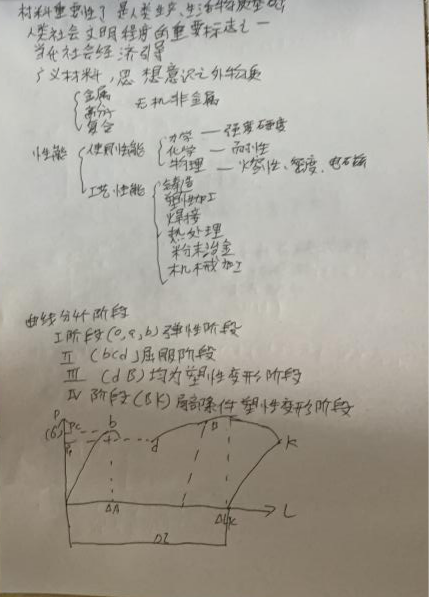 材料重要性了 是人类生产、生活物质基础
人类社会文明程度的重要标志之一
当代社会经济引导
广义材料,思想意识之外物质
金属
高分 无机非金属
复合
性能 使用性能 力学 — 强度硬度
化学 — 耐性
物理 — 熔点、密度、电磁
工艺性能 铸造
塑性加工
焊接
热处理
粉末冶金
机械加工
曲线分4阶段
I阶段(o,a,b)弹性阶段
II (bcd)屈服阶段
III (dB)均为塑性变形阶段
IV 阶段(BK)局部条件塑性变形阶段
P
b B
d K
ΔA L